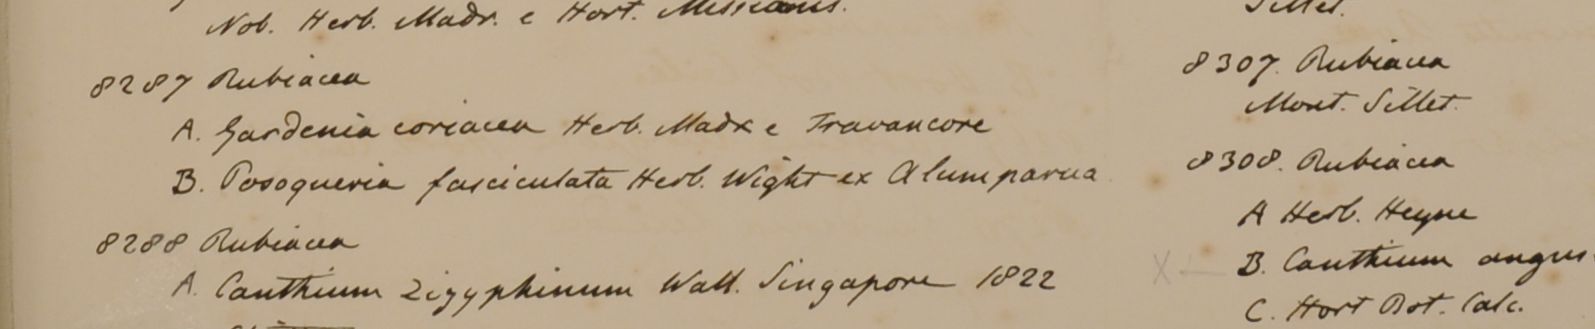 Nob. Herb. Madr. e Hort. Missionis.
8287 Rubiacea
A. Gardenia coriacea Herb. Madr e Travancore
B. Posoqueria fasciculata Herb. Wight ex Alumparva
8288 Rubiacea
A. Canthium Zizyphinum Wall. Singapore 1822
Sillet.
8307. Rubiacea
Mont. Sillet.
8308. Rubiacea
A Herb. Heyne
B. Canthium angus
C. Hort Bot. Calc.